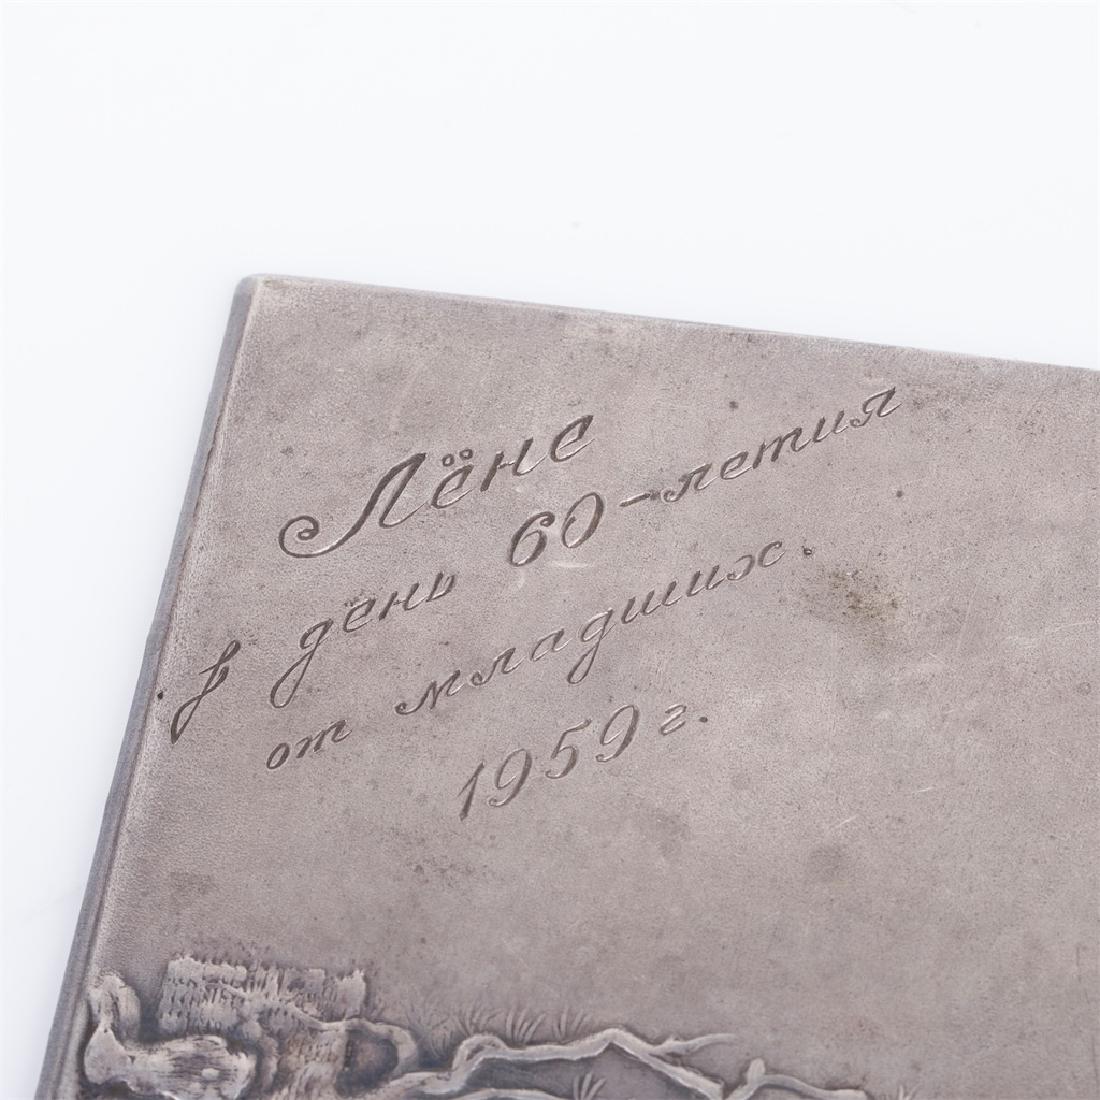 Лёне
в день 60-летия
от младших.
1959 г.